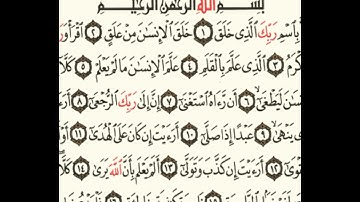 بِسْمِ اللَّهِ الرَّحْمَٰنِ الرَّحِيمِ
بِاسْمِ رَبِّكَ الَّذِي خَلَقَ ١ خَلَقَ الْإِنسَٰنَ مِنْ عَلَقٍ ٢ اقْرَأْ وَرَ
كْرَمُ ٣ الَّذِي عَلَّمَ بِالْقَلَمِ ٤ عَلَّمَ الْإِنسَٰنَ مَا لَمْ يَعْلَمْ ٥ كَلَّا
سَٰنَ لَيَطْغَىٰٓ ٦ أَن رَّءَاهُ اسْتَغْنَىٰٓ ٧ إِنَّ إِلَىٰ رَبِّكَ الرُّجْعَىٰٓ ٨ أَرَءَ
ى يَنْهَىٰ ٩ عَبْدًا إِذَا صَلَّىٰٓ ١٠ أَرَءَيْتَ إِن كَانَ عَلَى الْهُدَىٰٓ ١١ أَوْ
قْوَىٰٓ ١٢ أَرَءَيْتَ إِن كَذَّبَ وَتَوَلَّىٰٓ ١٣ أَلَمْ يَعْلَم بِأَنَّ اللَّهَ يَرَىٰ ١٤ كَلَّا